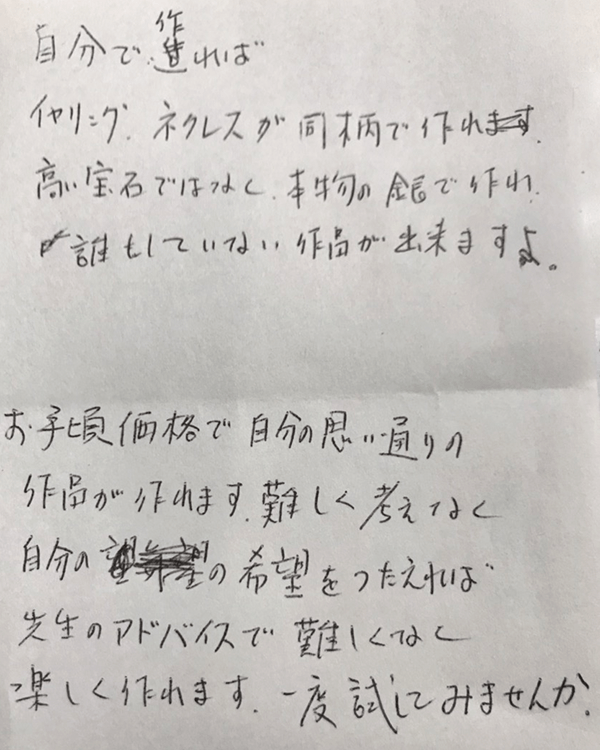 自分で作れば
イヤリング、ネクレスが同柄で作れ
高い宝石ではなく、本物の銀で作れ、
誰もしていない作品が出来ますよ。
お手頃価格で自分の思い通りの
作品が作れます。難しく考えなく
自分のの希望をつたえれば
先生のアドバイスで難しくなく
楽しく作れます。一度試してみませんか。